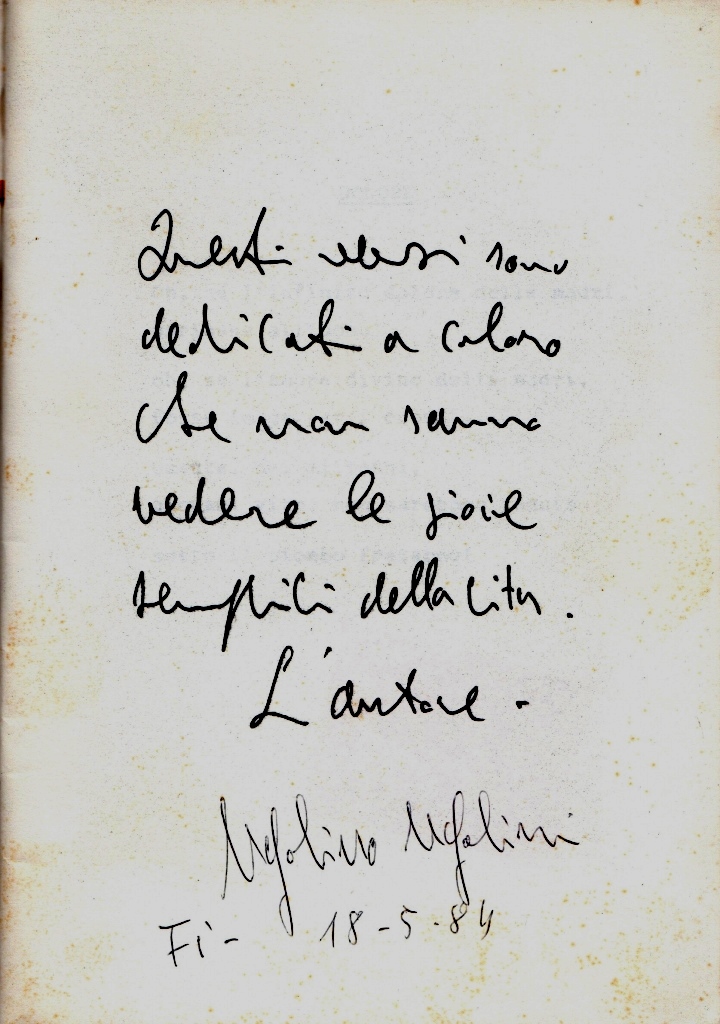 Questi versi sono
dedicati a coloro
che non sanno
vedere le gioie
semplici della vita.
L'autore -
Ugolino Ugolini
Fi- 18-5-84